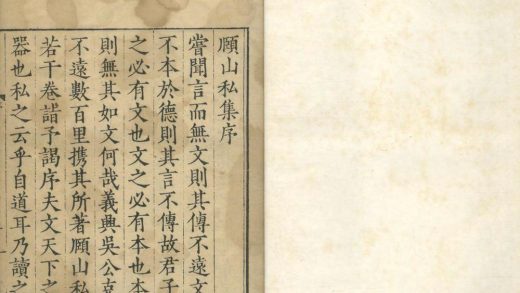 頋山私集序
嘗聞言而無文則其傳不遠文
不本於德則其言不傳故君子
之必有文也文之必有本也本
則無其如文何哉義興吳公袁
不遠數百里携其所著頋山私
若干卷詣予謁序夫文天下之
器也私之云乎自道耳乃讀之